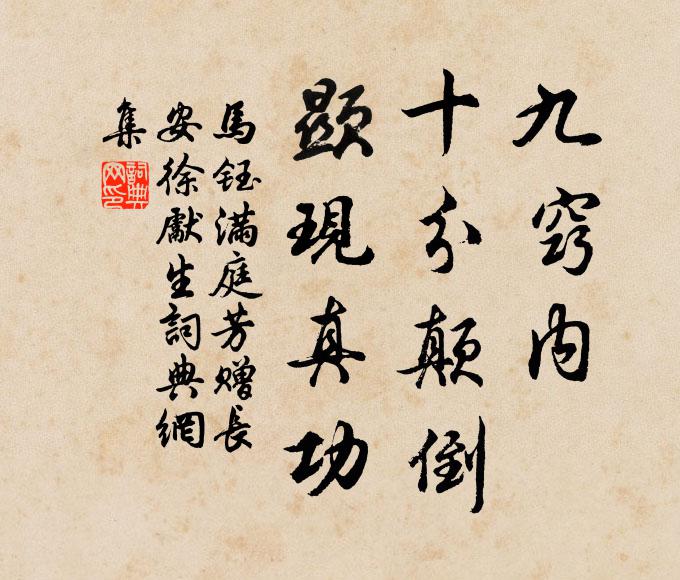 九窍内
十分颠倒
顯現真功
馬鈺滿庭芳贈長
安徐獻生詞典網
集
詞典
网印